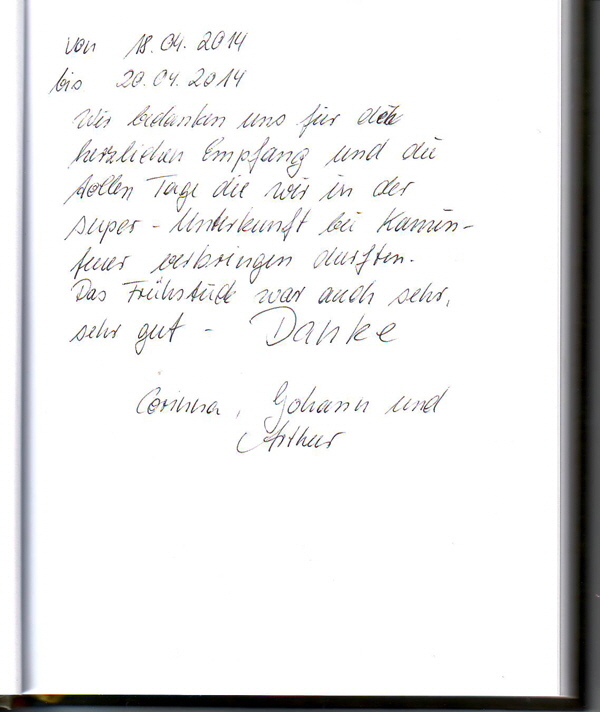 von 18.04.2014
bis 20.04.2014
Wir bedanken uns für den
herzlichen Empfang und die
tollen Tage die wir in der
super - Unterkunft bei Kamin-
feuer verbringen durften.
Das Frühstück war auch sehr,
sehr gut - Danke
Corinna, Johann und
Arthur